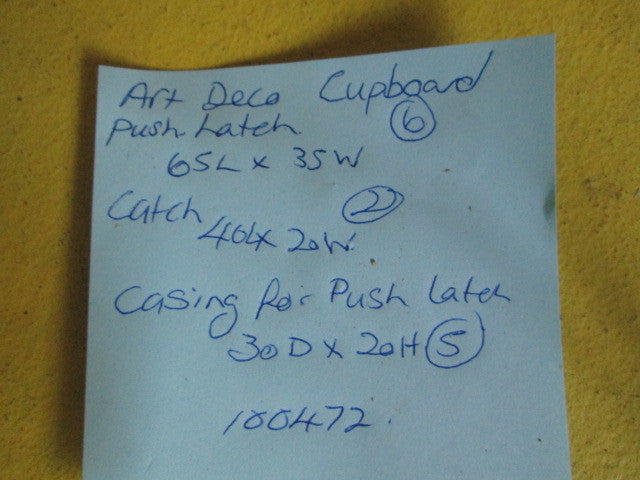 Art Deco Cupboard
Push Latch 6
65L x 35W
Catch 2
40Lx 20W.
Casing for Push Latch
30D x 20H 5
100472.